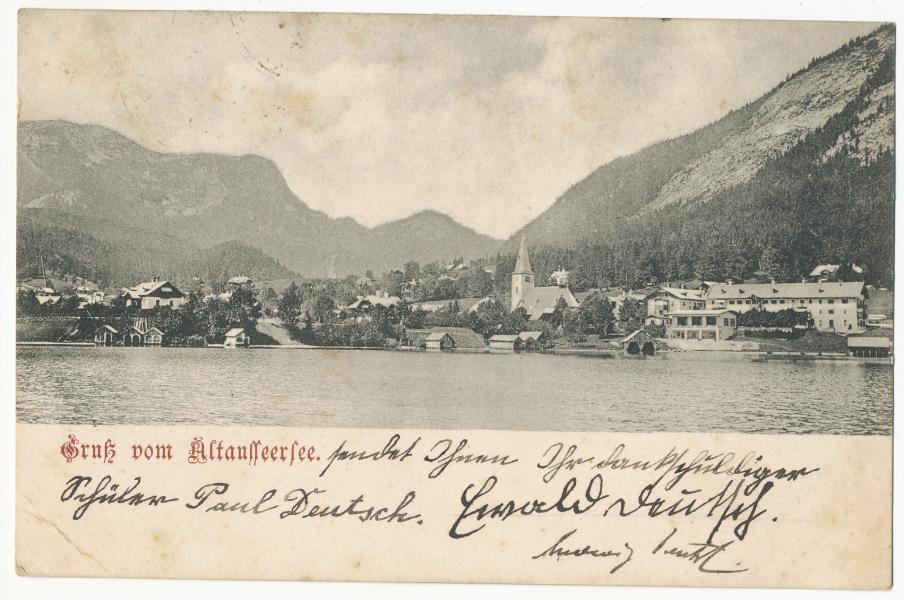 Gruß vom Altausseersee. sendet Ihnen Ihr dankschuldiger
Schüler Paul Deutsch. Ewald Deutsch.
Deutsch